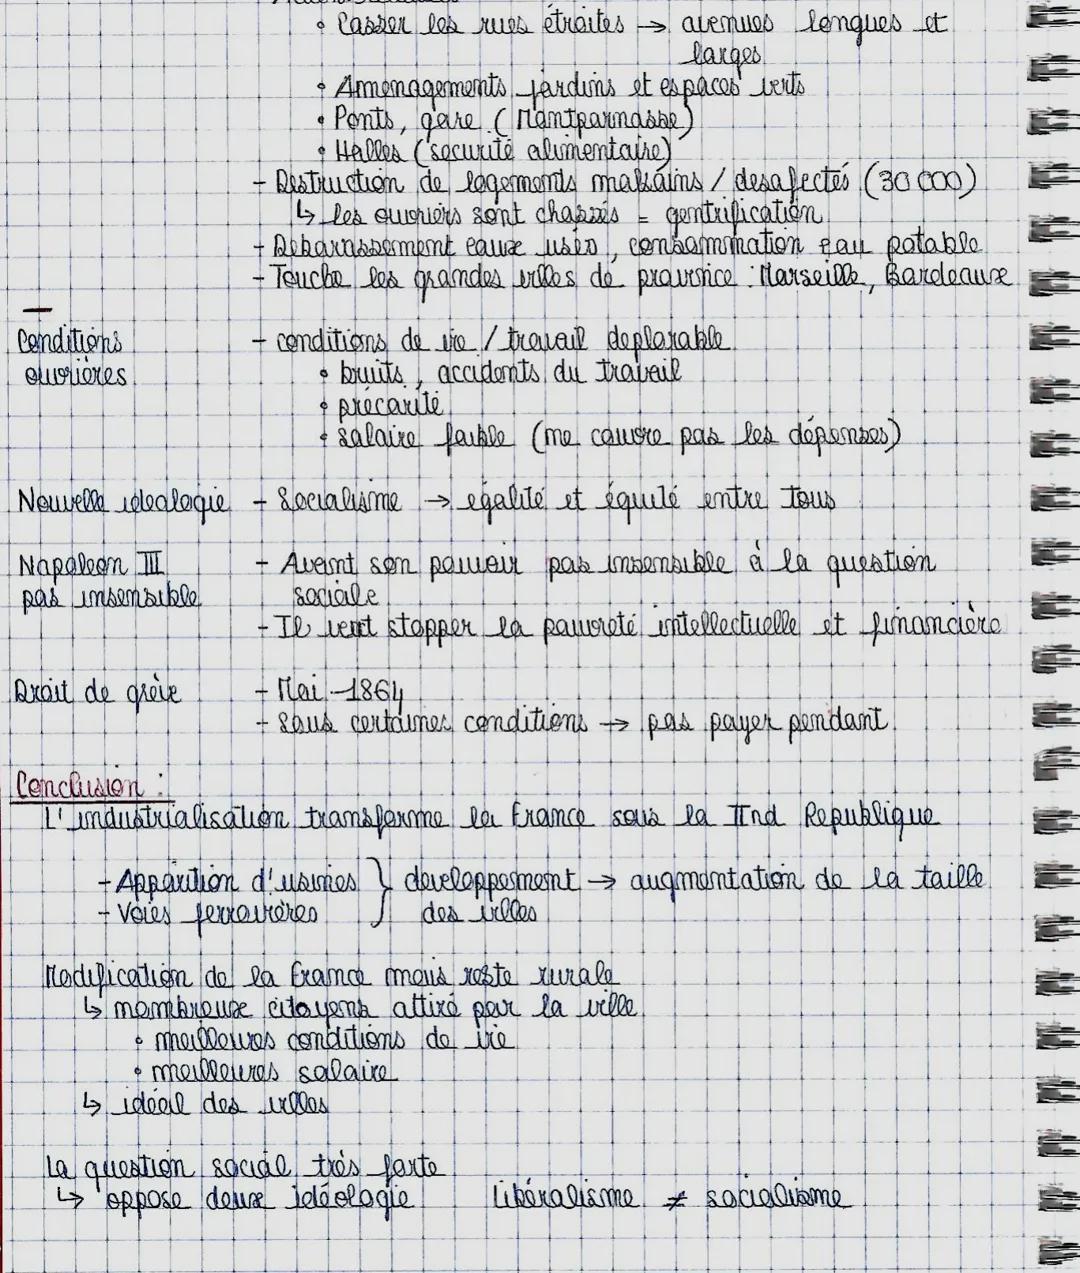 • Casser les rues étroites → avenues longues et
larges
• Amenagements jardins et espaces verts
• Ponts, gare (Montparnasse)
• Halles (securité alimentaire)
- Destruction de logements malsains / desafectés (30 000)
↳ les ouvriers sont chassés = gentrification
- Debarassement eaux usés, consommation eau potable
- Touche les grandes villes de province : Marseille, Bordeaux
Conditions - conditions de vie / travail deplorable
ouvrières • bruits, accidents du travail
• précarité
• salaire faible (ne couvre pas les dépenses)
Nouvelle idealogie - Socialisme → egalité et équité entre tous
Napoleon III - Avant son pouvoir pas insensible à la question
pas insensible sociale
- Il veut stopper la pauvreté intellectuelle et financière
Droit de grève - Mai 1864
- Sous certaines conditions → pas payer pendant
Conclusion :
L'industrialisation transforme la France sous la IInd Republique
- Apparition d'usines } developpement → augmentation de la taille
- Voies ferrovières } des villes
Modification de la France mais reste rurale
↳ nombreux citoyens attiré par la ville
• meilleures conditions de vie
• meilleures salaire
↳ idéal des villes
La question social très forte
↳ oppose deux idéologie libéralisme ≠ socialisme